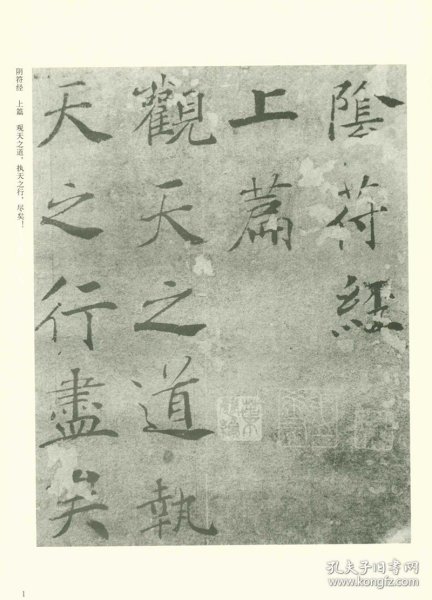 陰符經
上篇
觀天之道執
天之行盡矣
阴符经 上篇 观天之道，执天之行，尽矣！
1
孔夫子旧书网
www.kongfz.com